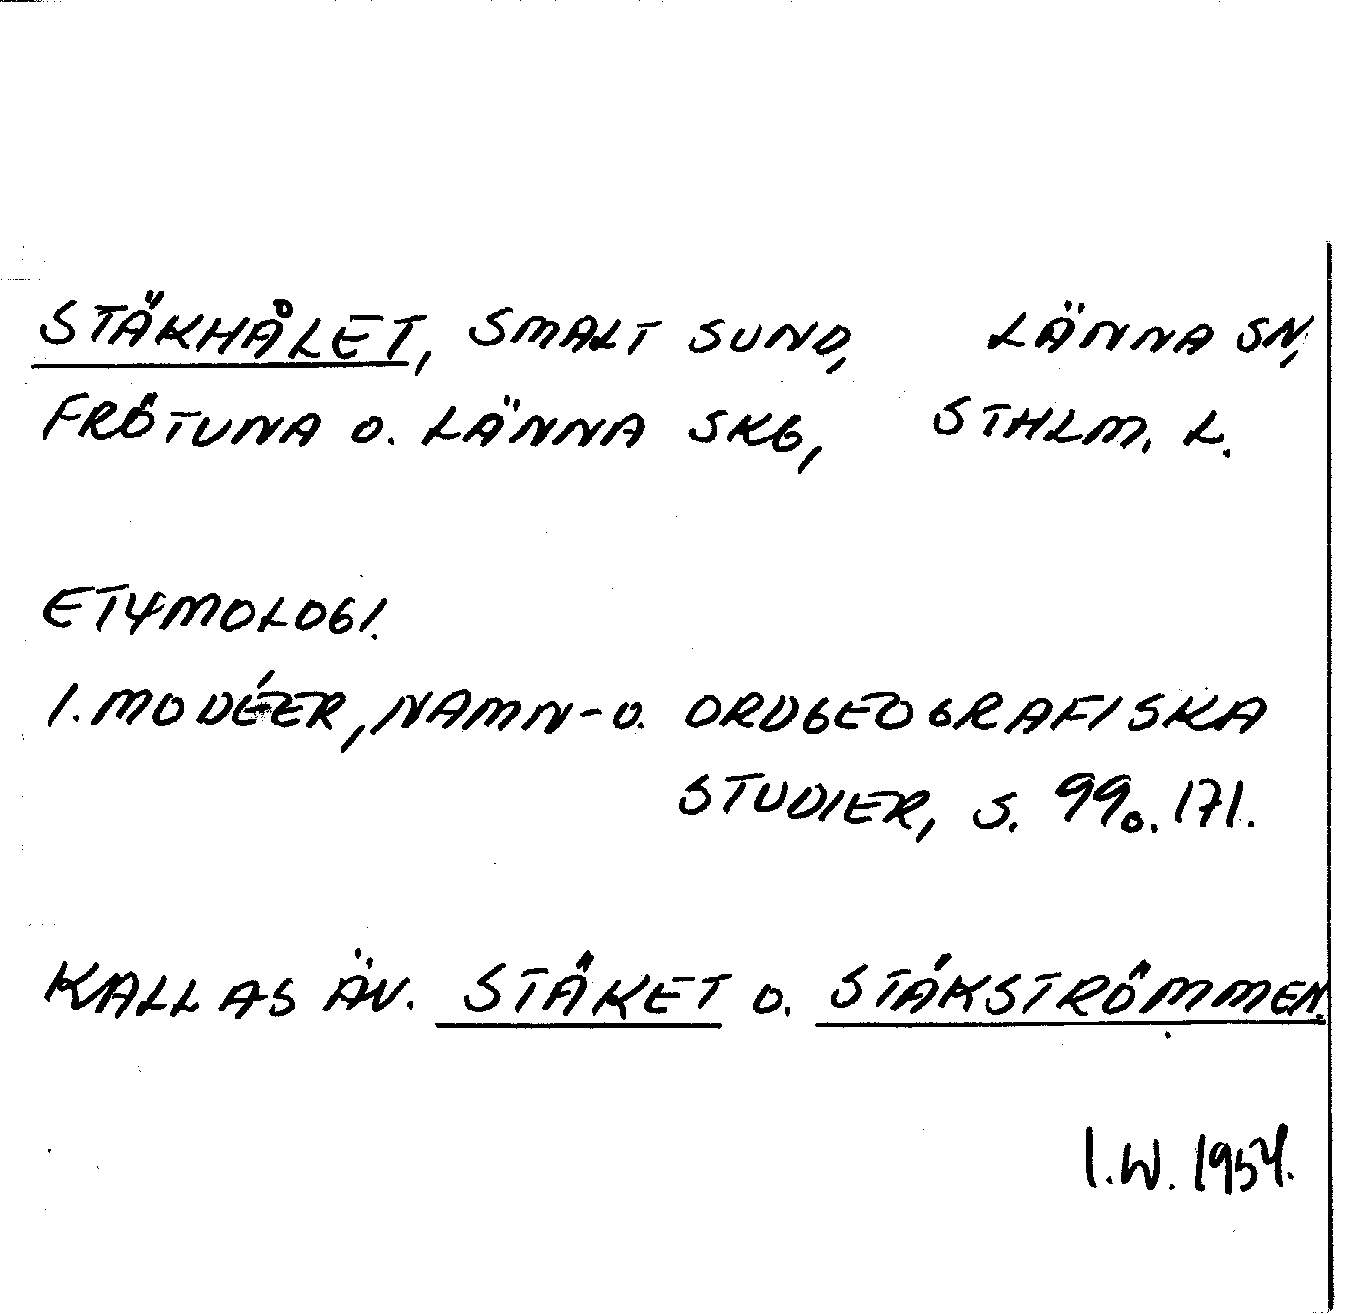 STÄKHÅLET, SMALT SUND, LÄNNA SN,
FRÖTUNA O. LÄNNA SKG, STHLM. L.
ETYMOLOGI.
I. MODÉER, NAMN- O. ORDGEOGRAFISKA
STUDIER, S. 99 o. 171.
KALLAS ÄV. STÄKET O. STÄKSTRÖMMEN.
I.W. 1954.